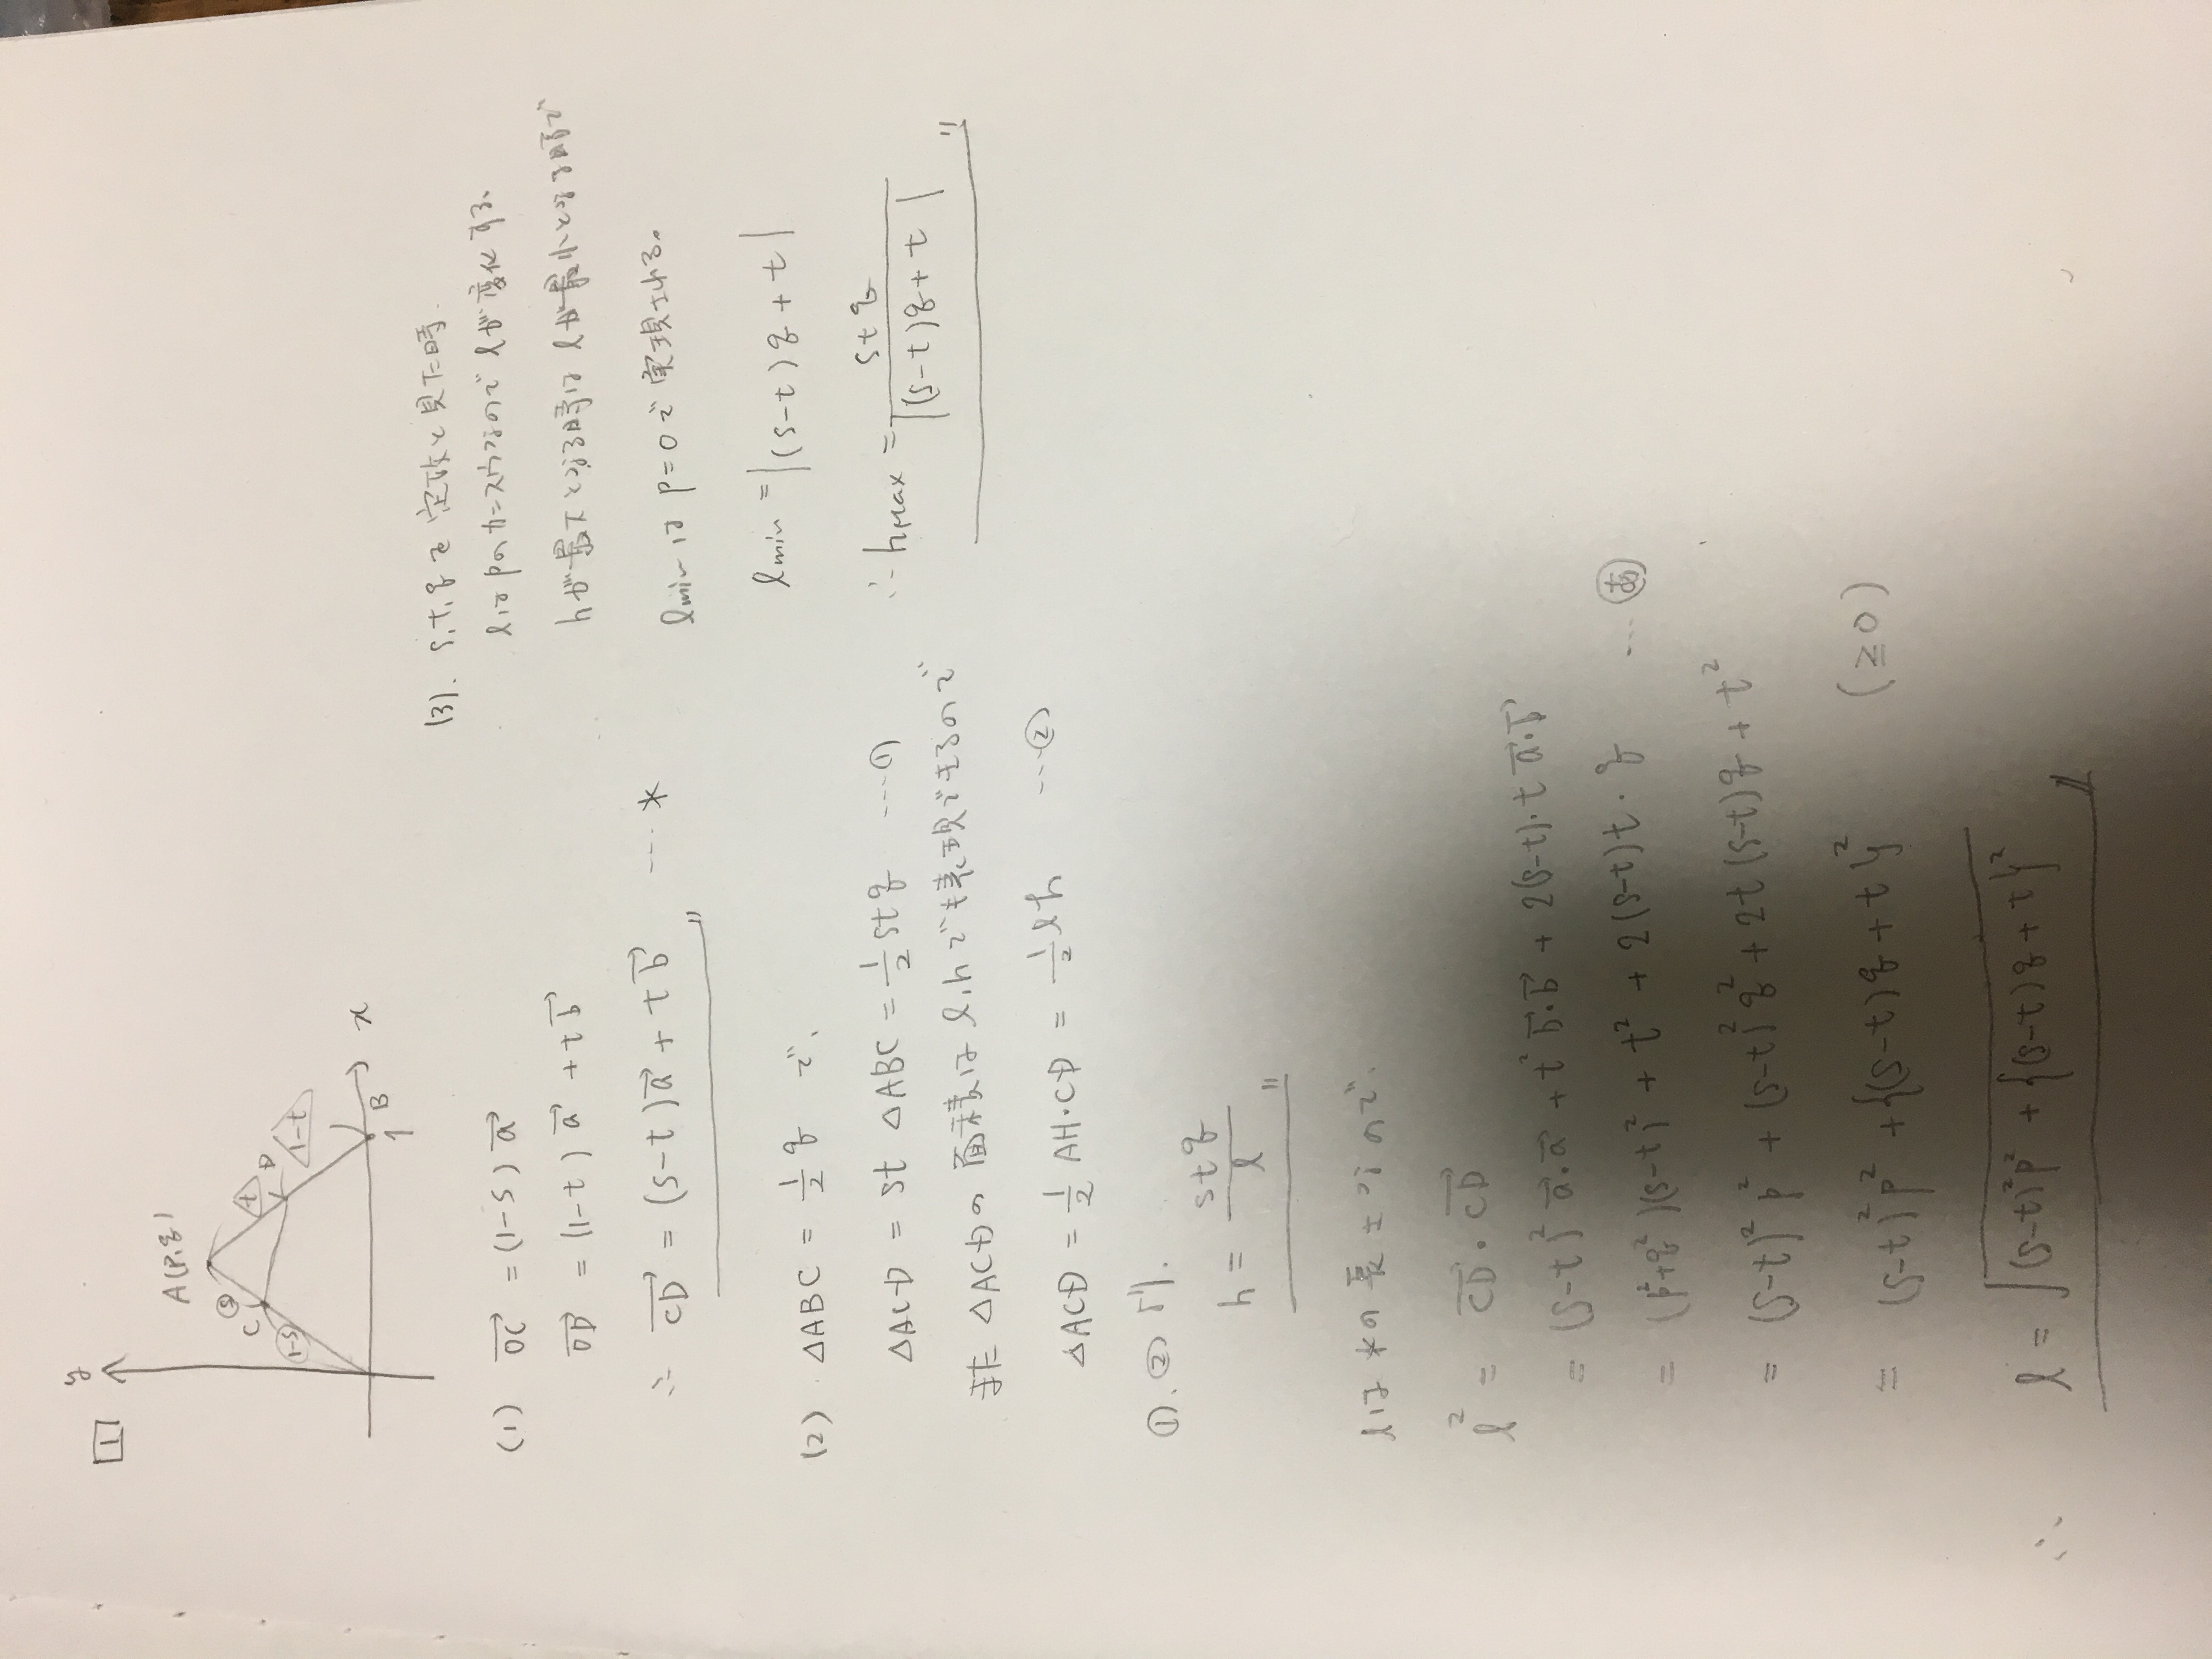 1
y
A(P,q)
s
C
1-s
t
D
1-t
B
1
x
(1) OC→ = (1-s)a→
OD→ = (1-t)a→ + tb→
∴ CD→ = (s-t)a→ + tb→ ……*
(2). △ABC = 1/2 q で、
△ACD = st △ABC = 1/2 stq ……①
また △ACDの面積は l,hでも表現できるので
△ACD = 1/2 AH・CD = 1/2 lh ……②
①,②より.
h = stq/l
lは*の長さなので、
l² = CD→・CD→
= (s-t)² a→・a→ + t² b→・b→ + 2(s-t)・t a→・b→
= (p²+q²)(s-t)² + t² + 2(s-t)t・q ……あ
= (s-t)²p² + (s-t)²q² + 2t(s-t)q + t²
= (s-t)²p² + {(s-t)q + t}² (≧0)
∴ l = √((s-t)²p² + {(s-t)q + t}²)
(3). s,t,qを定数と見た時
lはpの関数なので lが変化する、
hが最大となる時は lが最小となる時で
lminは p=0で実現される。
lmin = |(s-t)q + t|
∴ hMAX = stq/|(s-t)q + t|